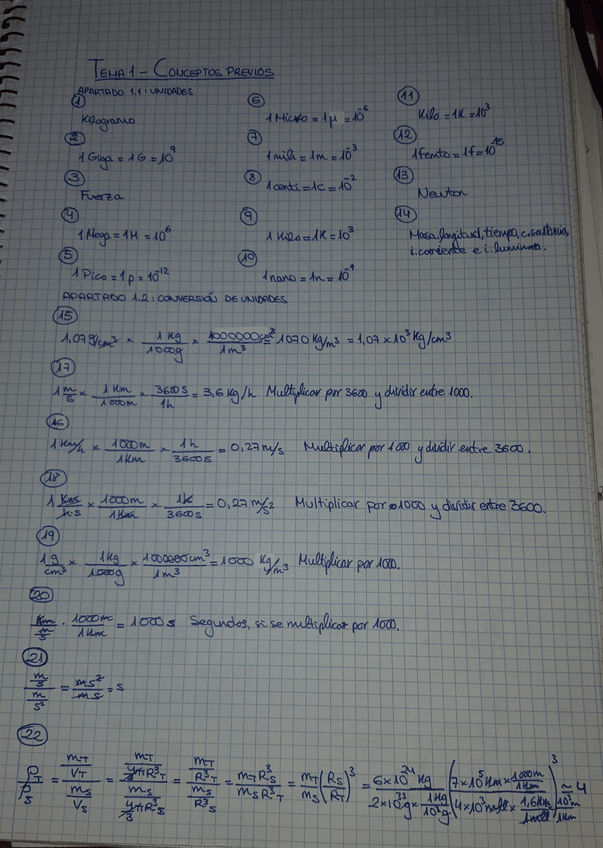 TEMA 1 - CONCEPTOS PREVIOS
APARTADO 1.1: UNIDADES
1
Kilogramo
2
1 Giga = 1G = 10^9
3
Fuerza
4
1 Mega = 1M = 10^6
5
1 Pico = 1p = 10^-12
6
1 Micro = 1μ = 10^-6
7
1 mili = 1m = 10^-3
8
1 centi = 1c = 10^-2
9
1 Kilo = 1K = 10^3
10
1 nano = 1n = 10^-9
11
Kilo = 1K = 10^3
12
1 femto = 1f = 10^-15
13
Newton
14
Masa, longitud, tiempo, c. sustancia,
i. corriente e i. luminosa.
APARTADO 1.2: CONVERSIÓN DE UNIDADES
15
1,07 g/cm^3 × 1 Kg/1000g × 1000000 cm^3/1 m^3 = 1070 Kg/m^3 = 1,07 × 10^3 Kg/cm^3
17
1 m/s × 1 Km/1000m × 3600 s/1h = 3,6 Kg/h Multiplicar por 3600 y dividir entre 1000.
16
1 Km/h × 1000m/1 Km × 1h/3600 s = 0,27 m/s Multiplicar por 1000 y dividir entre 3600.
18
1 Km/h·s × 1000m/1 Km × 1h/3600 s = 0,27 m/s^2 Multiplicar por 1000 y dividir entre 3600.
19
1 g/cm^3 × 1 Kg/1000g × 1000000 cm^3/1 m^3 = 1000 Kg/m^3 Multiplicar por 1000.
20
Km/(m/s) · 1000m/1 Km = 1000 s Segundos, si se multiplicar por 1000.
21
(m/s)/(m/s^2) = ms^2/ms = s
22
ρT/ρS = (mT/VT)/(mS/VS) = (mT/(4/3 π R^3T))/(mS/(4/3 π R^3S)) = (mT/R^3T)/(mS/R^3S) = mT R^3S/mS R^3T = mT/mS (RS/RT)^3 = 6×10^24 Kg/(2×10^33 g × 1 Kg/10^3 g) (7×10^5 Km × 1000m/1 Km / 4×10^3 mill × 1,6 Km/1 mill × 10^3 m/1 Km)^3 ≈ 4